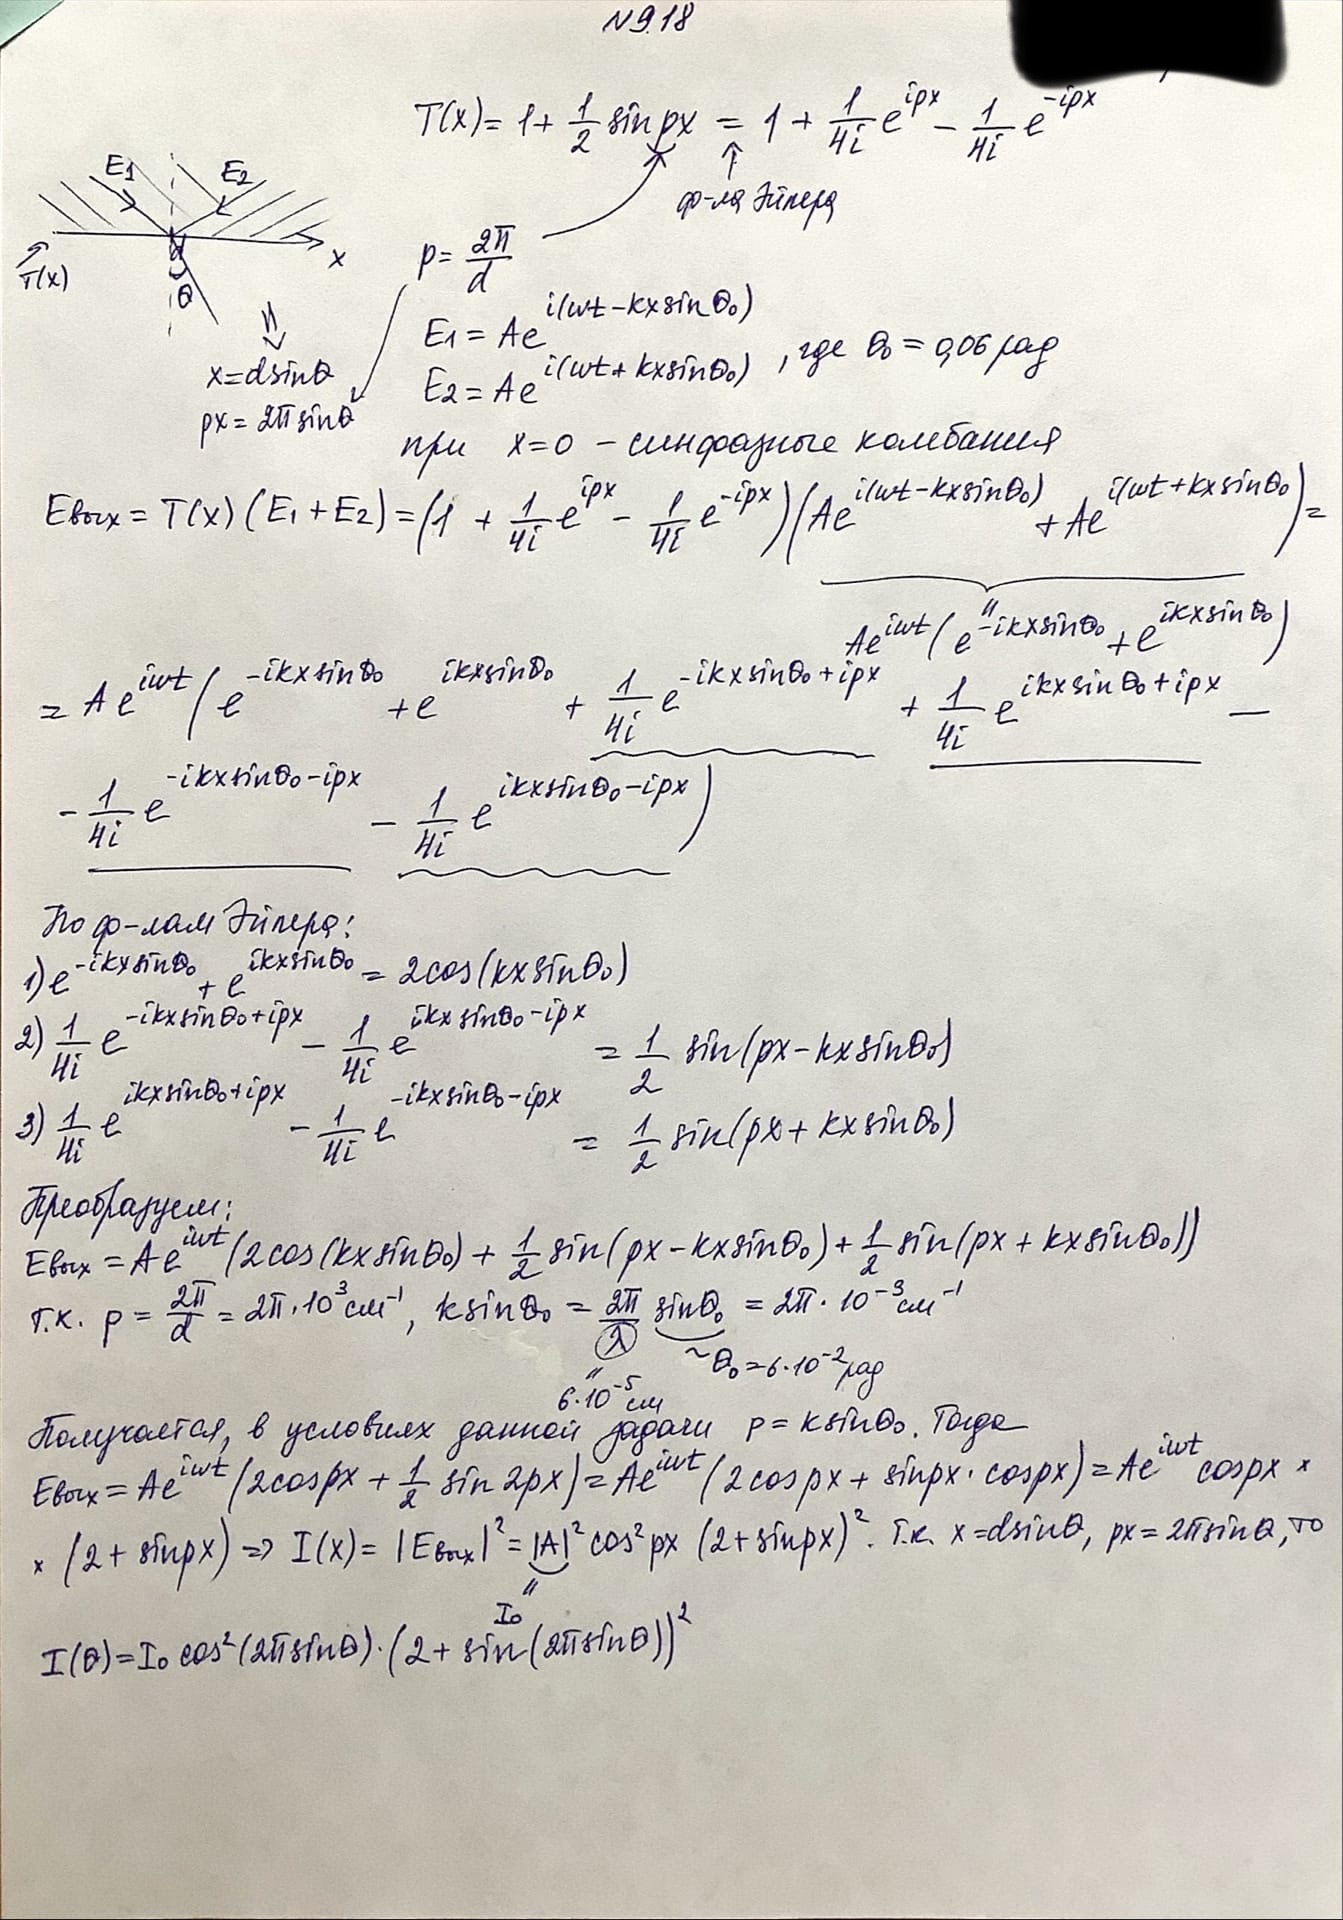 N 9.18
T(x) = 1 + 1/2 sin px = 1 + 1/4i e^{ipx} - 1/4i e^{-ipx}
ф-ла Эйлера
E1 E2
T(x)
x
θ
p = 2π/d
x = d sinθ
px = 2π sinθ
E1 = Ae^{i(ωt - kx sinθ₀)}
E2 = Ae^{i(ωt + kx sinθ₀)}, где θ₀ = 0,06 рад
при x = 0 - синфазные колебания
Eвых = T(x)(E1 + E2) = (1 + 1/4i e^{ipx} - 1/4i e^{-ipx})(Ae^{i(ωt - kx sinθ₀)} + Ae^{i(ωt + kx sinθ₀)}) =
Ae^{iωt}(e^{-ikx sinθ₀} + e^{ikx sinθ₀})
= Ae^{iωt}(e^{-ikx sinθ₀} + e^{ikx sinθ₀} + 1/4i e^{-ikx sinθ₀ + ipx} + 1/4i e^{ikx sinθ₀ + ipx} -
- 1/4i e^{-ikx sinθ₀ - ipx} - 1/4i e^{ikx sinθ₀ - ipx})
По ф-лам Эйлера:
1) e^{-ikx sinθ₀} + e^{ikx sinθ₀} = 2cos(kx sinθ₀)
2) 1/4i e^{-ikx sinθ₀ + ipx} - 1/4i e^{ikx sinθ₀ - ipx} = 1/2 sin(px - kx sinθ₀)
3) 1/4i e^{ikx sinθ₀ + ipx} - 1/4i e^{-ikx sinθ₀ - ipx} = 1/2 sin(px + kx sinθ₀)
Преобразуем:
Eвых = Ae^{iωt}(2cos(kx sinθ₀) + 1/2 sin(px - kx sinθ₀) + 1/2 sin(px + kx sinθ₀))
т.к. p = 2π/d = 2π·10³ см⁻¹, k sinθ₀ = 2π/λ sinθ₀ = 2π·10⁻³ см⁻¹
~θ₀ = 6·10⁻² рад
6·10⁻⁵ см
Получается, в условиях данной задачи p = k sinθ₀. Тогда
Eвых = Ae^{iωt}(2cos px + 1/2 sin 2px) = Ae^{iωt}(2cos px + sin px · cos px) = Ae^{iωt} cos px ×
× (2 + sin px) => I(x) = |Eвых|² = |A|² cos² px (2 + sin px)². Т.к. x = d sinθ, px = 2π sinθ, то
I₀
I(θ) = I₀ cos²(2π sinθ)·(2 + sin(2π sinθ))²